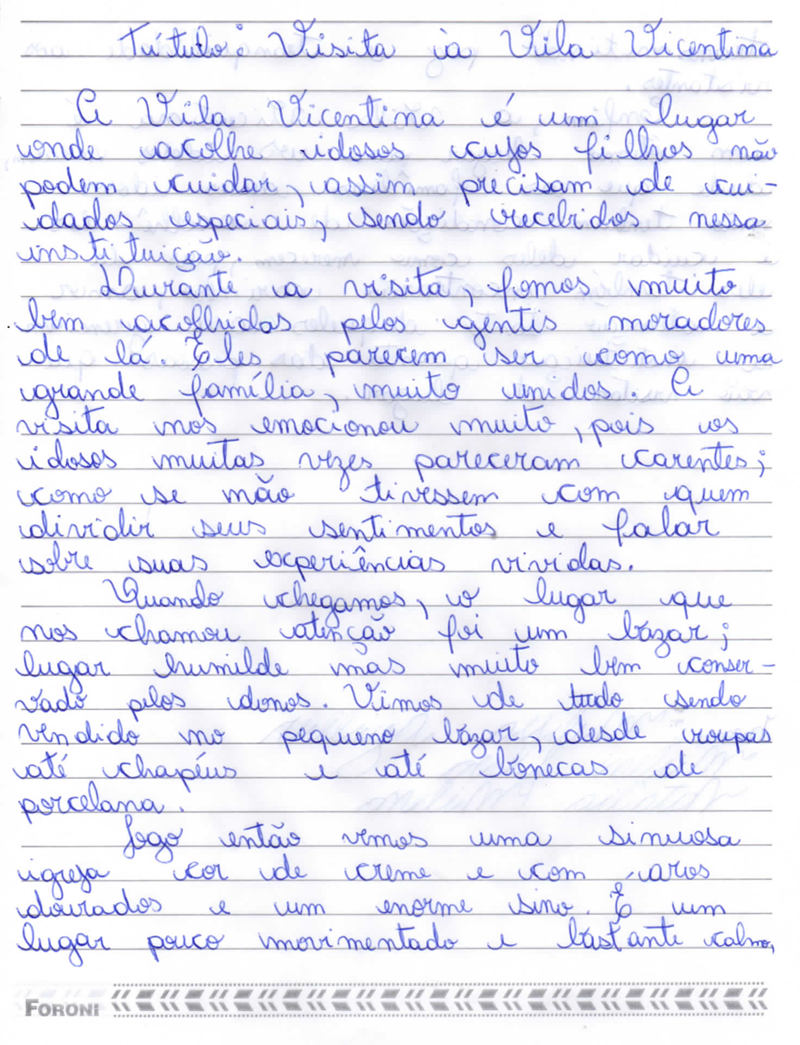 Título: Visita à Vila Vicentina
A Vila Vicentina é um lugar
onde acolhe idosos cujos filhos não
podem cuidar, assim precisam de cui-
dados especiais, sendo recebidos nessa
instituição.
Durante a visita, fomos muito
bem acolhidas pelos gentis moradores
de lá. Eles parecem ser como uma
grande família, muito unidos. A
visita nos emocionou muito, pois os
idosos muitas vezes pareceram carentes;
como se não tivessem com quem
dividir seus sentimentos e falar
sobre suas experiências vividas.
Quando chegamos, o lugar que
nos chamou atenção foi um bazar;
lugar humilde mas muito bem conser-
vado pelos donos. Vimos de tudo sendo
vendido no pequeno bazar, desde roupas
até chapéus e até bonecas de
porcelana.
Logo então vemos uma sinuosa
igreja cor de creme e com aros
dourados e um enorme sino. É um
lugar pouco movimentado e bastante calmo,
FORONI